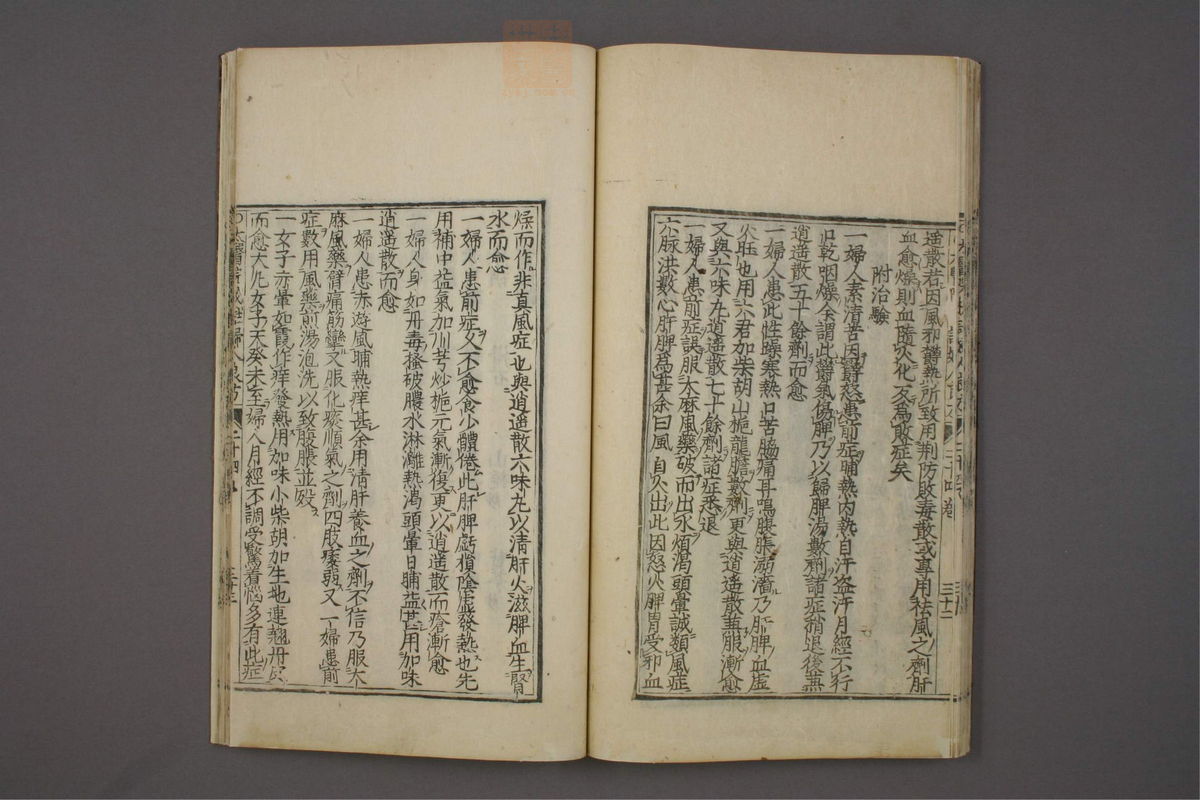 遥散若因風邪欝熱所致用荆防敗毒散或專用祛風之劑肝
血愈燥則血隨火化反為敗症矣
附治驗
一婦人素清苦因欝怒患前症晡熱内熱自汗盗汗月經不行
口乾咽燥余謂此欝氣傷脾乃以歸脾湯數劑諸症稍退後無
逍遥散五十餘劑而愈
一婦人患此性躁寒熱口苦脇痛耳鳴腹脹溺澀乃肝脾血虚
火旺也用六君加柴胡山梔龍膽數劑更與逍遥散兼服漸愈
又與六味丸逍遥散七十餘劑諸症悉退
一婦人患前症誤服大麻風藥破而出水煩渴頭暈誠類風症
六脉洪數心肝脾為甚余曰風自火出此因怒火脾胃受邪血
燥而作非真風症也與逍遥散六味丸以清肝火滋脾血生腎
水而愈
一婦人患前症久不愈食少體倦此肝脾虧損陰虚發熱也先
用補中益氣加川芎炒梔元氣漸復更以逍遥散而瘡漸愈
一婦人身如丹毒搔破膿水淋漓熱渴頭暈日晡益甚用加味
逍遥散而愈
一婦人患赤游風晡熱痒甚余用清肝養血之劑不信乃服大
麻風藥臂痛筋攣又服化痰順氣之劑四肢痿弱又一婦患前
症數用風藥煎湯泡洗以致腹脹並殁
一女子赤暈如霞作痒發熱用加味小柴胡加生地連翹丹皮
而愈大凡女子天癸未至婦人月經不調受驚着惱多有此症